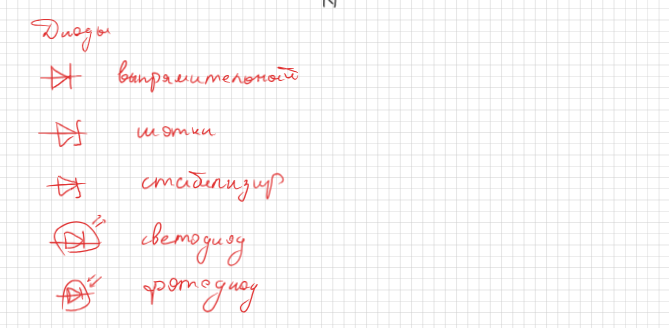 Диоды
выпрямительной
шотки
стабилизир
светодиод
фотодиод